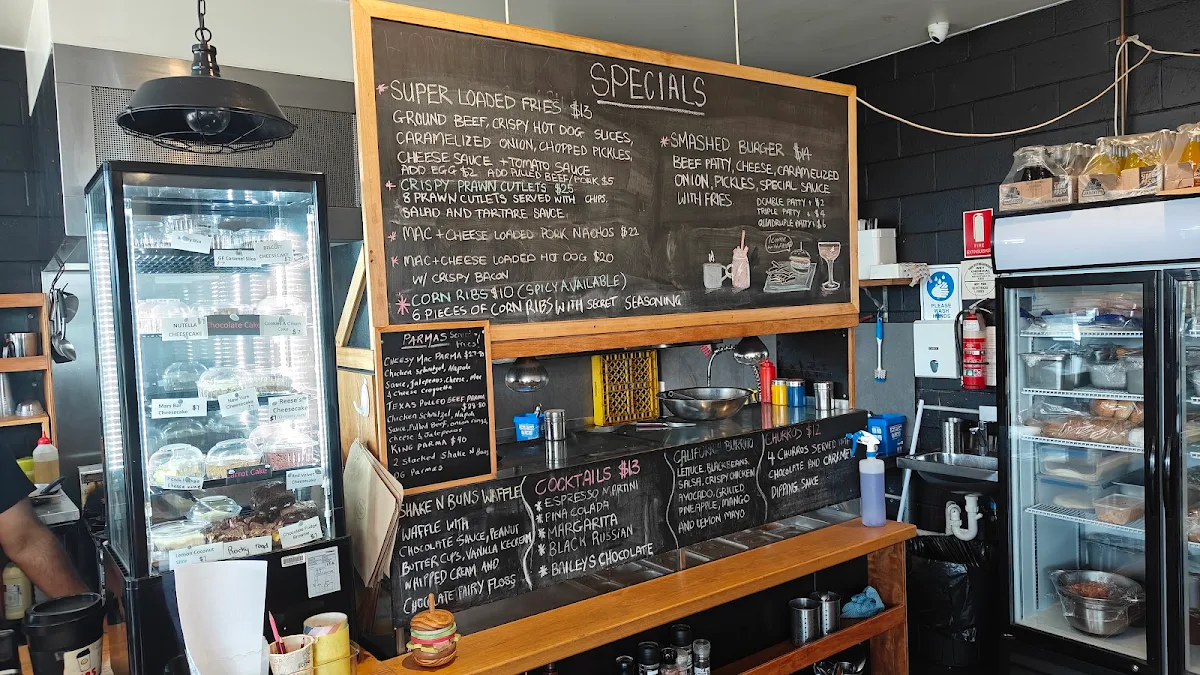 SPECIALS
* SUPER LOADED FRIES $13
GROUND BEEF, CRISPY HOT DOG SLICES,
CARAMELIZED ONION, CHOPPED PICKLES,
CHEESE SAUCE + TOMATO SAUCE
ADD EGG $2 ADD PULLED BEEF/PORK $5
* CRISPY PRAWN CUTLETS $25
8 PRAWN CUTLETS SERVED WITH CHIPS,
SALAD AND TARTARE SAUCE
* MAC + CHEESE LOADED PORK NACHOS $22
* MAC + CHEESE LOADED HOT DOG $20
W/ CRISPY BACON
* CORN RIBS $10 (SPICY AVAILABLE)
6 PIECES OF CORN RIBS WITH SECRET SEASONING
* SMASHED BURGER $14
BEEF PATTY, CHEESE, CARAMELIZED
ONION, PICKLES, SPECIAL SAUCE
WITH FRIES
DOUBLE PATTY + $2
TRIPLE PATTY + $4
QUADRUPLE PATTY + $6
PARMAS
CHEESY MAC PARMA
Chicken schnitzel, Napoli
Sauce, Jalapenos, Cheese, Mac
& Cheese Croquette
TEXAS PULLED BEEF PARMA
Chicken Schnitzel, Napoli
Sauce, Pulled Beef, onion rings,
Cheese & Jalapenos
KING PARMA $40
2 stacked Shake N Buns
OG Parmas
SHAKE N BUNS WAFFLE
WAFFLE WITH
CHOCOLATE SAUCE, PEANUT
BUTTER CUPS, VANILLA ICECREAM
WHIPPED CREAM AND
CHOCOLATE FAIRY FLOSS
COCKTAILS $13
* ESPRESSO MARTINI
* PINA COLADA
* MARGARITA
* BLACK RUSSIAN
* BAILEY'S CHOCOLATE
CALIFORNIA BURRITO
LETTUCE, BLACK BEANS,
SALSA, CRISPY CHICKEN
AVOCADO, GRILLED
PINEAPPLE, MANGO
AND LEMON MAYO
CHURROS $12
4 CHURROS SERVED WITH
CHOCOLATE AND CARAMEL
DIPPING SAUCE
GF Caramel Slice
NUTELLA
CHEESECAKE
Chocolate Cake
Cookies & Cream
Cake $7
New York
Cheesecake
Reese's
Cheesecake
Carrot Cake
Red Velvet
Cheesecake
Lemon Coconut
Rocky Road
Chocolate Fudge
Brownie
FIRE
EXTINGUISHER
PLEASE
WASH
HANDS